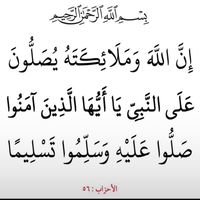 بِسْمِ اللَّهِ الرَّحْمَٰنِ الرَّحِيمِ
إِنَّ اللَّهَ وَمَلَائِكَتَهُ يُصَلُّونَ
عَلَى النَّبِيِّ يَا أَيُّهَا الَّذِينَ آمَنُوا
صَلُّوا عَلَيْهِ وَسَلِّمُوا تَسْلِيمًا
الأحزاب : ٥٦